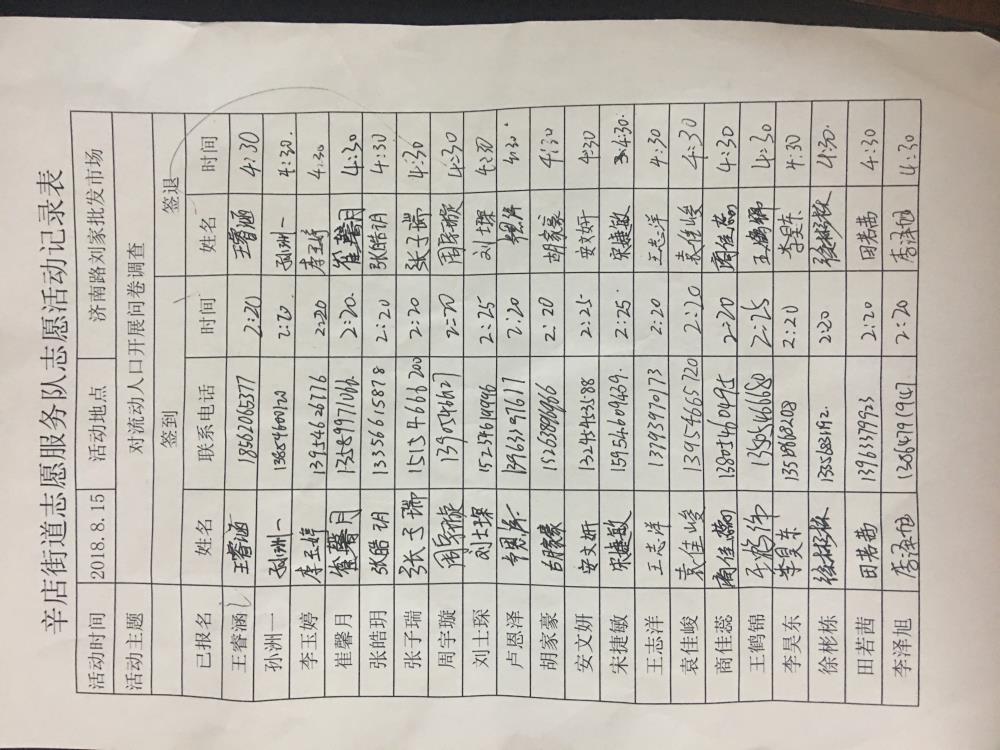 辛店街道志愿服务队志愿活动记录表
活动时间 2018.8.15 活动地点 济南路刘家批发市场
活动主题 对流动人口开展问卷调查
签到 签退
已报名 姓名 联系电话 时间 姓名 时间
王睿涵 王睿涵 18562065377 2:20 王睿涵 4:30
孙洲一 孙洲一 13854600120 2:20 孙洲一 4:30.
李玉婷 李玉婷 13954626776 2:20 李玉婷 4:30
崔馨月 崔馨月 13589971066. 2:20. 崔馨月 4:30
张皓玥 张皓玥 13356615878 2:20 张皓玥 4:30
张子瑞 张子瑞 15154666200 2:20 张子瑞 4:30
周宇璇 周宇璇 13905466627 2:20 周宇璇 4:30
刘士琛 刘士琛 15234614996 2:25 刘士琛 4:30
卢恩泽 13963397617 2:20 4:30
胡家豪 胡家豪 15263896966 2:20 胡家豪 4:30
安文妍 安文妍 13245463588 2:25 安文妍 4:30
宋捷敏 宋捷敏 15954609469. 2:25. 宋捷敏 4:30.
王志洋 王志洋 13793970173 2:20 王志洋 4:30
袁佳峻 袁佳峻 139154665720 2:20 袁佳峻 4:30
商佳蕊 商佳蕊 13805460495 2:20 商佳蕊 4:30
王鹤锦 13505466680 2:25 4:30
李昊东 李昊东 13519868208 2:20 李昊东 4:30
徐彬栋 徐彬栋 13356831192. 2:20 徐彬栋 4:30.
田若茜 田若茜 13963379923 2:20 田若茜 4:30
李泽旭 李泽旭 13864791941 2:20 李泽旭 4:30